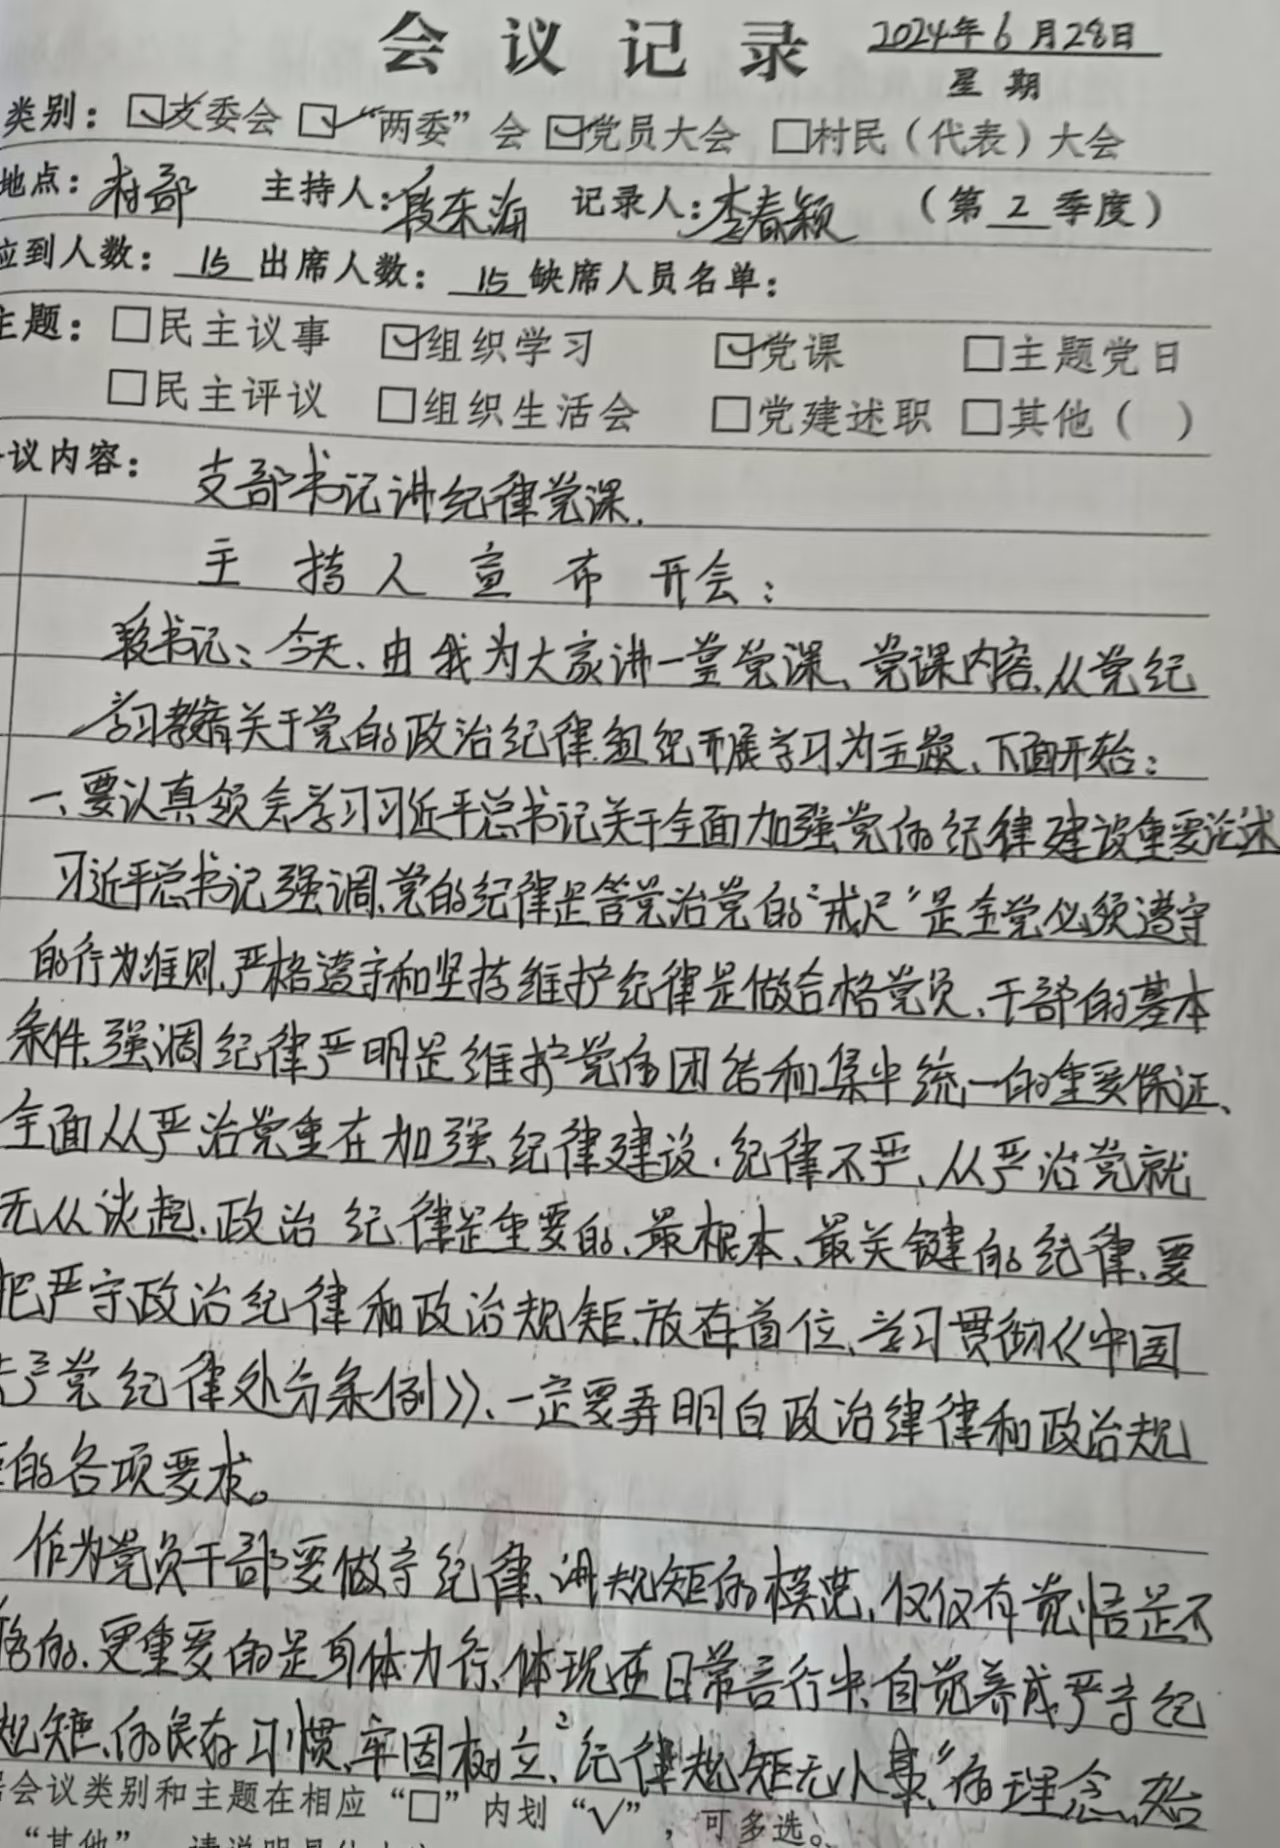 会议记录 2024年6月28日
星期
类别：☑支委会 ☑“两委”会 ☑党员大会 □村民（代表）大会
地点：村部 主持人：段东海 记录人：李春颖 （第2季度）
应到人数：15 出席人数：15 缺席人员名单：
主题：□民主议事 ☑组织学习 ☑党课 □主题党日
□民主评议 □组织生活会 □党建述职 □其他（ ）
议内容：支部书记讲纪律党课.
主持人宣布开会：
段书记：今天、由我为大家讲一堂党课、党课内容、从党纪
学习教育关于党的政治纪律.组织开展学习为主题、下面开始：
一、要认真领会学习习近平总书记关于全面加强党的纪律建设重要论述
习近平总书记强调、党的纪律是管党治党的“戒尺”是全党必须遵守
的行为准则、严格遵守和坚持维护纪律是做合格党员、干部的基本
条件、强调纪律严明是维护党的团结和集中统一的重要保证、
全面从严治党重在加强纪律建设.纪律不严、从严治党就
无从谈起.政治纪律是重要的、最根本、最关键的纪律、要
把严守政治纪律和政治规矩、放在首位、学习贯彻《中国
产党纪律处分条例》、一定要弄明白政治律律和政治规
的各项要求。
作为党员干部要做守纪律、讲规矩的模范、仅仅有觉悟是不
的、更重要的是身体力行、体现在日常言行中、自觉养成严守纪
矩、的良存习惯、牢固树立、“纪律规矩无小事”的理念、始
会议类别和主题在相应“□”内划“√”，可多选。
“其他”